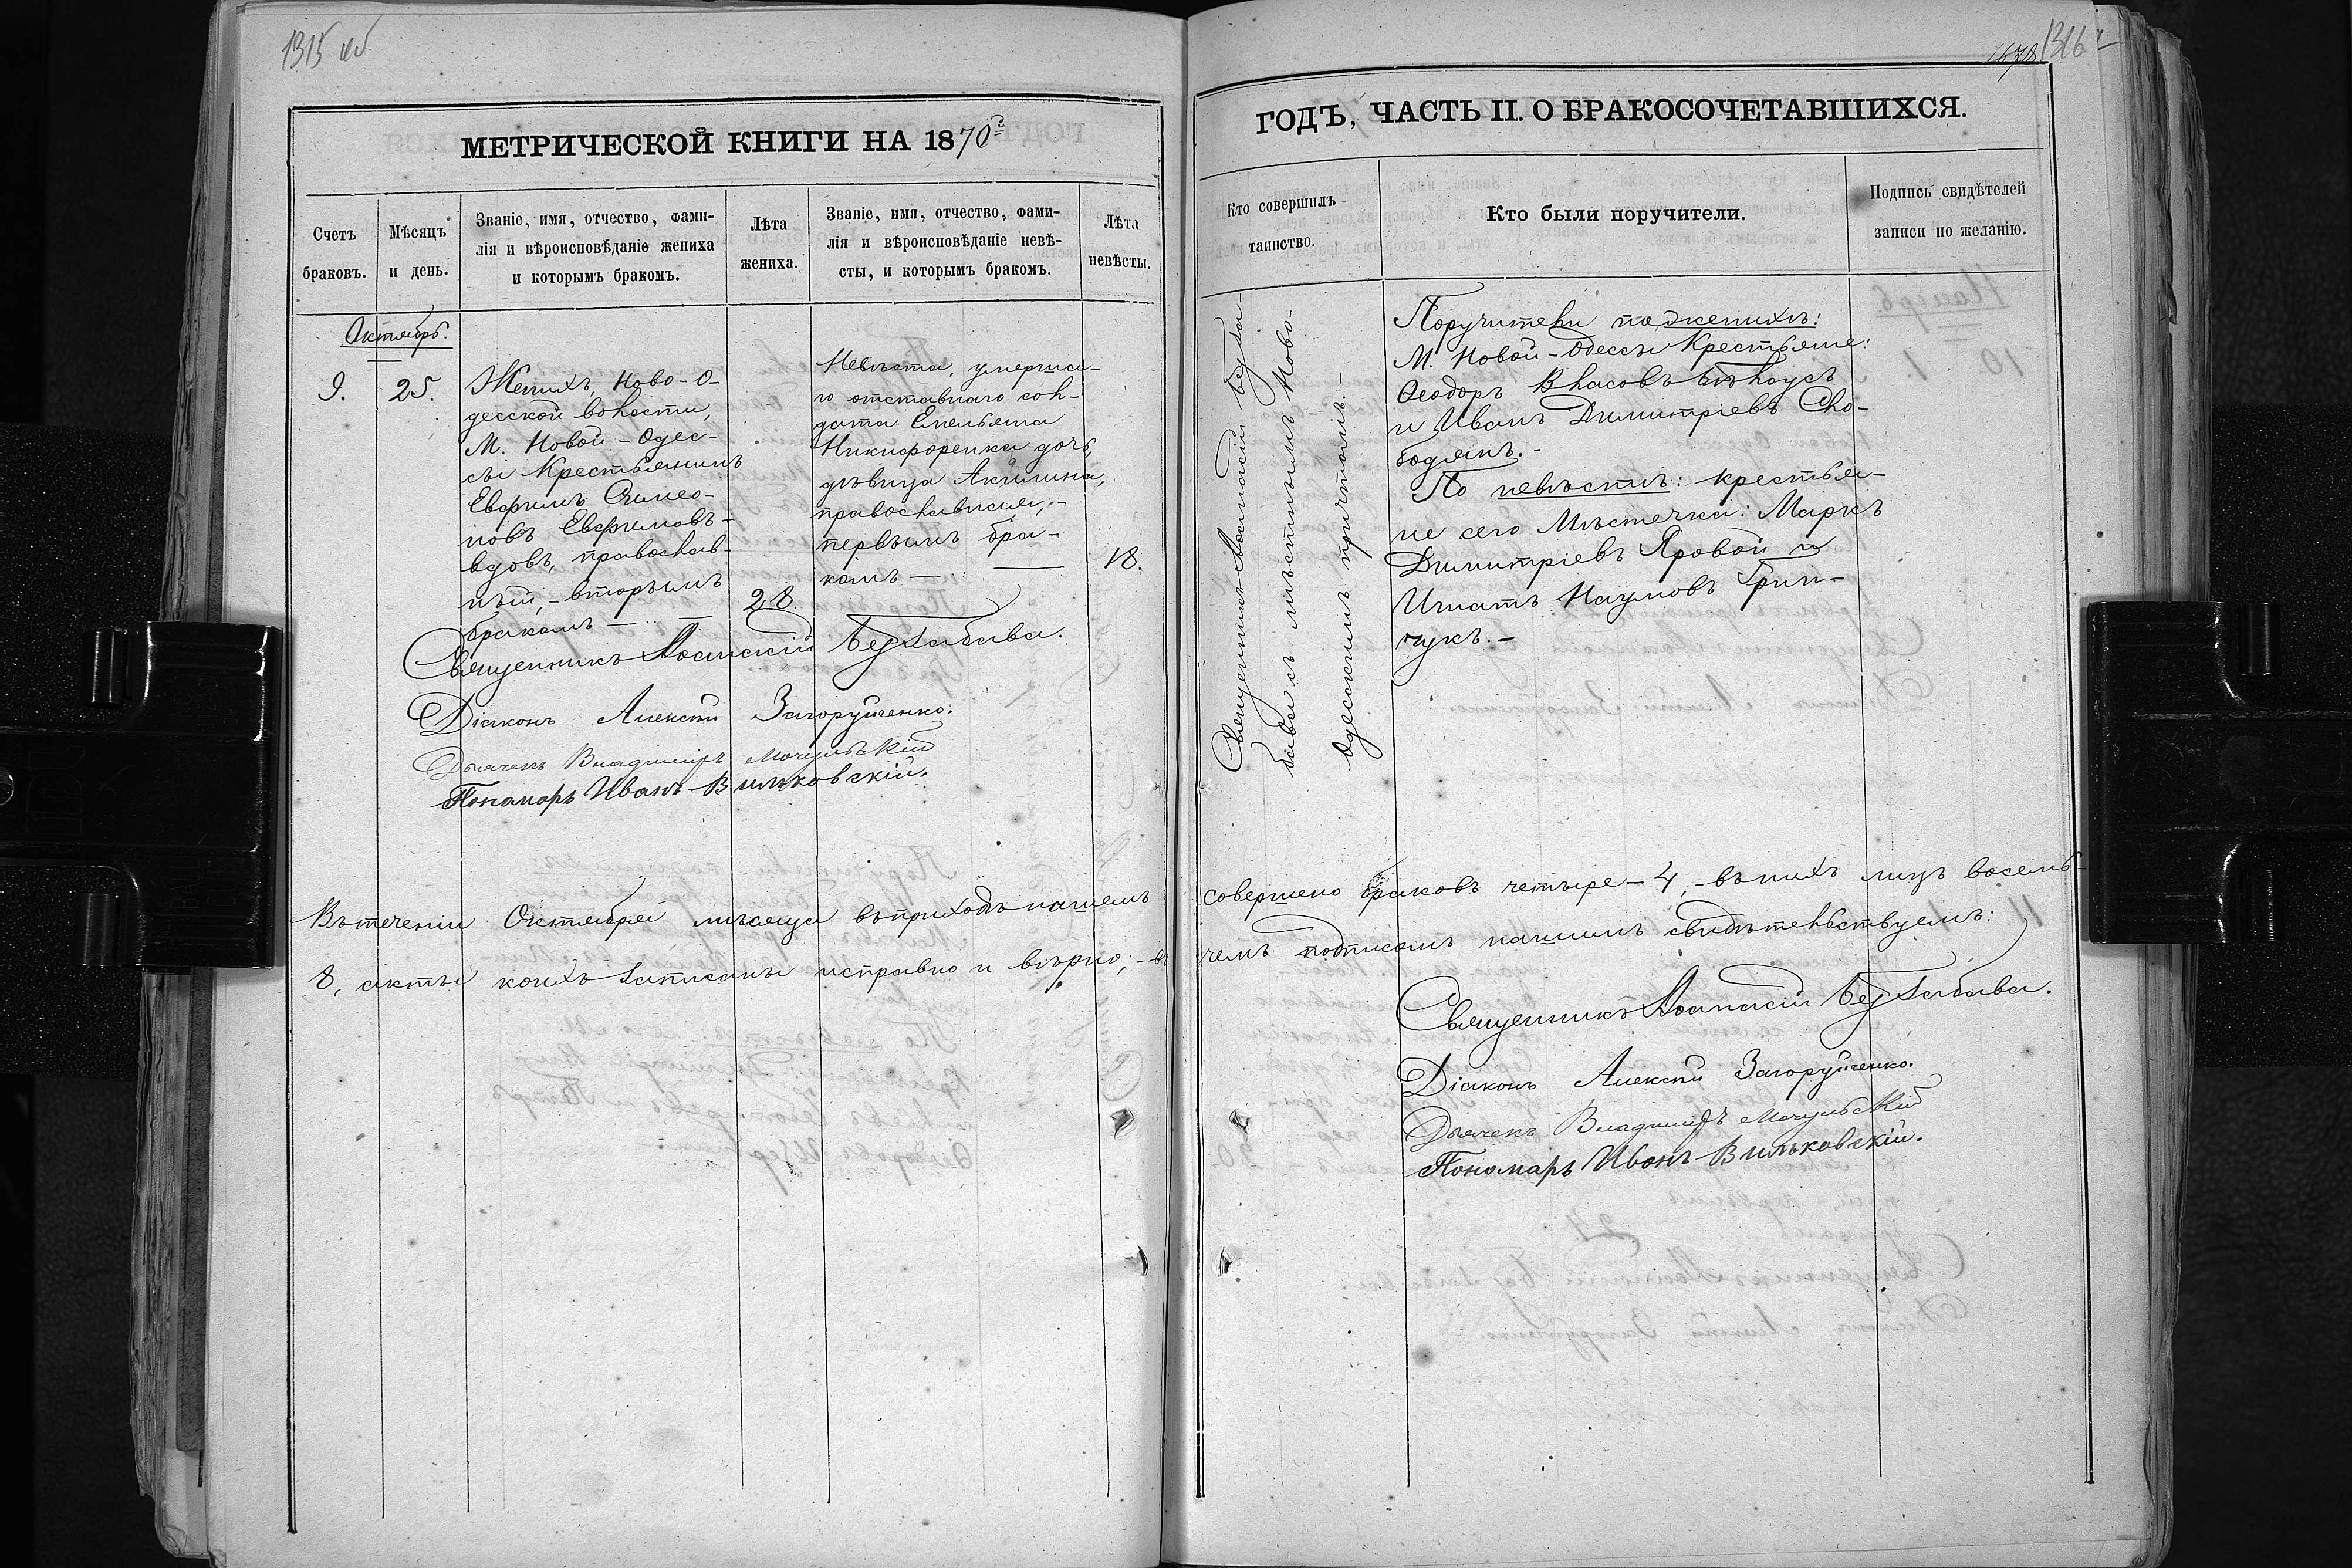 1315 об
МЕТРИЧЕСКОЙ КНИГИ НА 1870й
Счетъ браковъ.
Мѣсяцъ и день.
Званіе, имя, отчество, фами-
лія и вѣроисповѣданіе жениха
и которымъ бракомъ.
Лѣта жениха.
Званіе, имя, отчество, фами-
лія и вѣроисповѣданіе невѣ-
сты, и которымъ бракомъ.
Лѣта невѣсты.
Октябрь.
9. 25.
Женихъ, Ново-О-
десской волости,
М. Новой-Одес-
сы Крестьянинъ
Евфимъ Симео-
новъ Евфимовъ-
вдовъ, православ-
ный,- вторымъ
бракомъ
28.
Невѣста, умерша-
го отставнаго сол-
дата Емельяна
Никифоренка дочь,
дѣвица Акилина,
православная,-
первымъ бра-
комъ —
18.
Священникъ Аѳанасій Беззабава.
Діаконъ Алексѣй Загоруйченко.
Дьячекъ Владиміръ Мочульскій
Пономарь Иванъ Вильковскій.
Въ теченіи Октября мѣсяца въ приходѣ нашемъ
8, акты коихъ записаны исправно и вѣрно;- въ
1316
ГОДЪ, ЧАСТЬ II. О БРАКОСОЧЕТАВШИХСЯ.
Кто совершилъ
таинство.
Кто были поручители.
Подпись свидѣтелей
записи по желанію.
Священникъ Аѳанасій Безза-
бава съ мѣстнымъ Ново-
Одесскимъ причтомъ.-
Поручители по женихѣ:
М. Новой-Одессы Крестьяне:
Ѳеодоръ Власовъ Бѣлоусъ
и Иванъ Димитріевъ Сло-
бодянъ.-
По невѣстѣ: крестья-
не сего Мѣстечка: Маркъ
Димитріевъ Яровой и
Игнатъ Наумовъ Грин-
чукъ.-
совершено браковъ четыре-4,- въ нихъ лицъ восемь-
чемъ подписомъ нашимъ свидѣтельствуемъ:
Священникъ Аѳанасій Беззабава.
Діаконъ Алексѣй Загоруйченко.
Дьячекъ Владиміръ Мочульскій
Пономарь Иванъ Вильковскій.